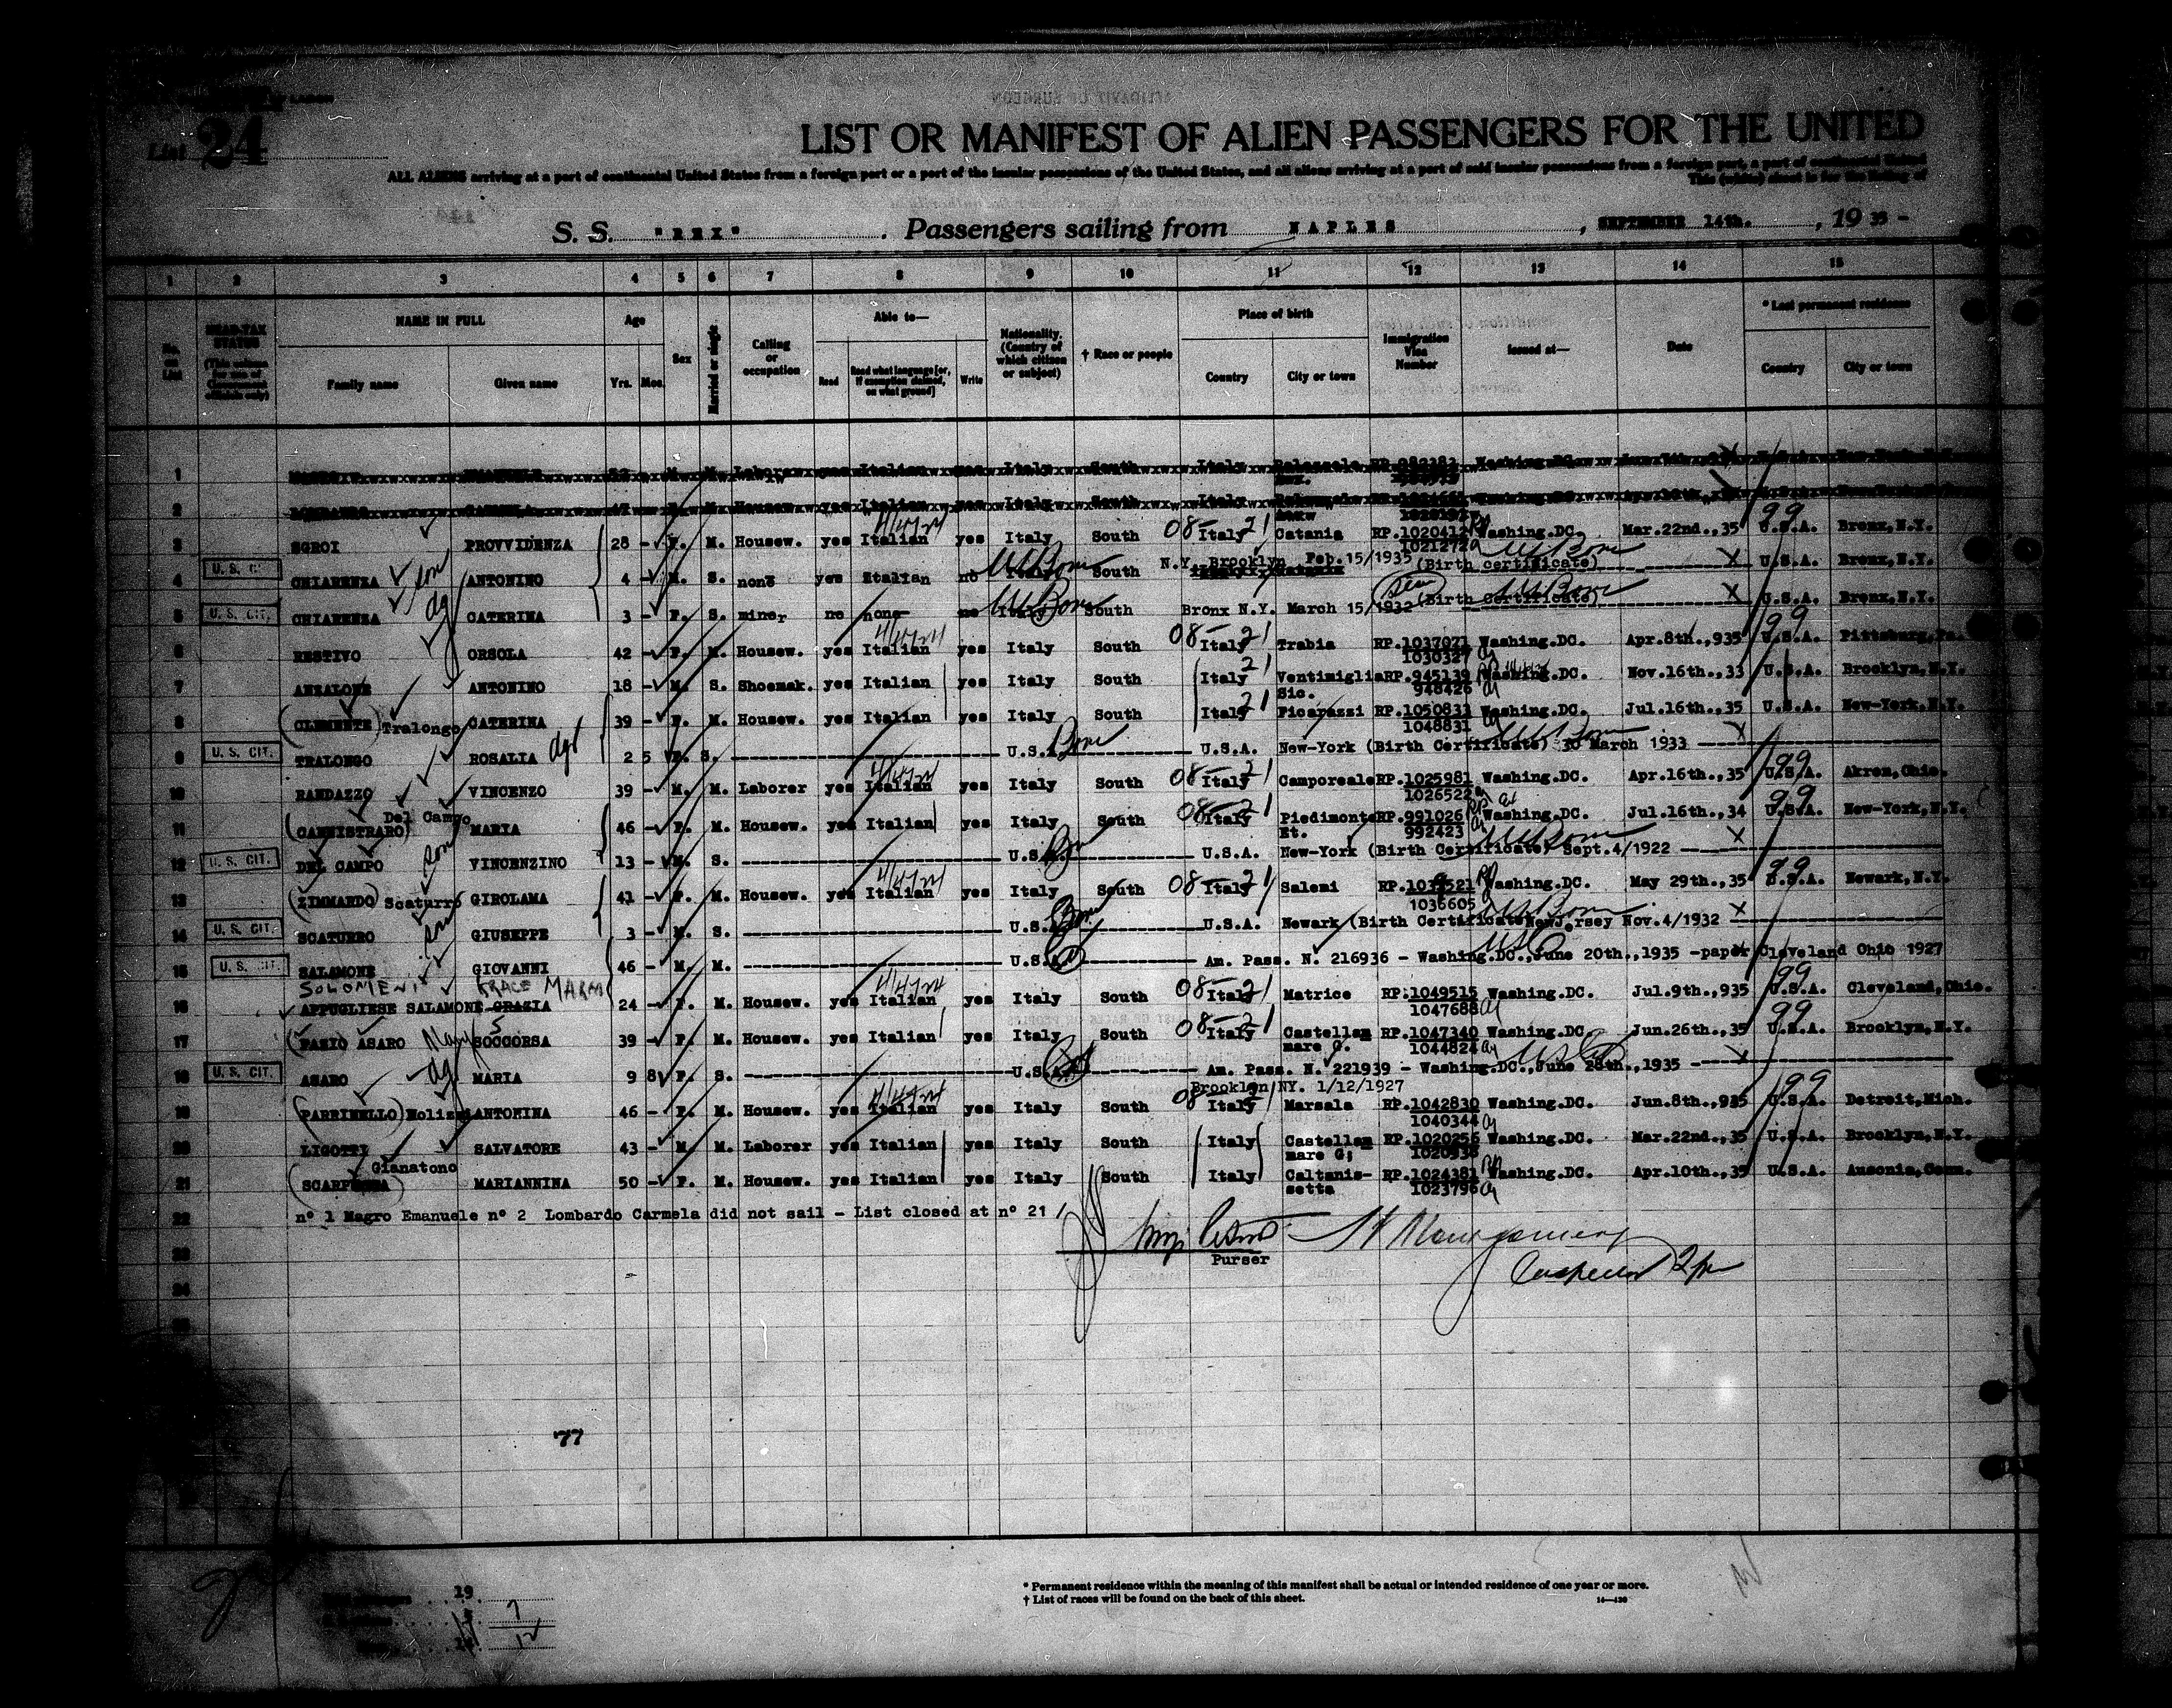 List 24
LIST OR MANIFEST OF ALIEN PASSENGERS FOR THE UNITED
ALL ALIENS arriving at a port of continental United States from a foreign port or a port of the insular possessions of the United States, and all aliens arriving at a port of said insular possessions from a foreign port, a port of continental United
This (white) sheet is for the listing of
S. S. "REX" . Passengers sailing from NAPLES , SEPTEMBER 14th. , 19 35 -
1 2 3 4 5 6 7 8 9 10 11 12 13 14 15
No. on List
HEAD-TAX STATUS (This column for use of Government officials only)
NAME IN FULL Family name Given name
Age Yrs. Mos.
Sex
Married or single
Calling or occupation
Able to— Read Read what language [or, if exemption claimed, on what ground] Write
Nationality. (Country of which citizen or subject)
† Race or people
Place of birth Country City or town
Immigration Visa Number
Issued at—
Date
* Last permanent residence Country City or town
1 Italian Italy South Italy
2 Housew. yes Italian yes Italy South Italy
3 SGROI PROVVIDENZA 28 - F. M. Housew. yes Italian yes Italy South 08- Italy 21 Catania RP.1020412 Washing.DC. Mar.22nd.,35 U.S.A. Bronx,N.Y.
1021272
4 U. S. CIT. CHIARENZA son ANTONINO 4 - M. S. none yes Italian no Italy US Born South N.Y. Brooklyn Feb.15/1935 (Birth certificate) US Born X U.S.A. Bronx,N.Y.
5 U. S. CIT. CHIARENZA dg CATERINA 3 - F. S. minor no none no US Born South Bronx N.Y. March 15/1932 (Birth Certificate) US Born X U.S.A. Bronx,N.Y.
6 RESTIVO ORSOLA 42 - F. M. Housew. yes Italian yes Italy South 08- Italy 21 Trabia RP.1037071 Washing.DC. Apr.8th.,935 99 U.S.A. Pittsburg,Pa.
1030327
7 ANZALONE ANTONINO 18 - M. S. Shoemak. yes Italian yes Italy South Italy 21 Ventimiglia Sic. RP.945139 Washing.DC. Nov.16th.,33 U.S.A. Brooklyn,N.Y.
948426
8 (CLEMENTE) Tralongo CATERINA 39 - F. M. Housew. yes Italian yes Italy South Italy 21 Ficarazzi RP.1050833 Washing.DC. Jul.16th.,35 U.S.A. New-York,N.Y.
1048831
9 U. S. CIT. TRALONGO ROSALIA dgt 2 5 F. S. U.S.A. Born U.S.A. New-York (Birth Certificate) 30 March 1933 X
10 RANDAZZO VINCENZO 39 - M. M. Laborer yes Italian yes Italy South 08- Italy 21 Camporeale RP.1025981 Washing.DC. Apr.16th.,35 99 U.S.A. Akron,Ohio.
1026522
11 (CANNISTRARO) Del Campo MARIA 46 - F. M. Housew. yes Italian yes Italy South 08- Italy 21 Piedimonte Et. RP.991026 Washing.DC. Jul.16th.,34 99 U.S.A. New-York,N.Y.
992423
12 U. S. CIT. DEL CAMPO son VINCENZINO 13 - M. S. U.S.A. Born U.S.A. New-York (Birth Certificate) Sept.4/1922 X
13 (ZIMMARDO) Scaturro GIROLAMA 41 - F. M. Housew. yes Italian yes Italy South 08- Italy 21 Salemi Washing.DC. May 29th.,35 99 U.S.A. Newark,N.Y.
1036605
14 U. S. CIT. SCATURRO son GIUSEPPE 3 - M. S. U.S.A. Born U.S.A. Newark (Birth Certificate) New Jersey Nov.4/1932 X
15 U. S. CIT. SALAMONE GIOVANNI 46 - M. M. U.S.A. Am. Pass. N. 216936 - Washing.DC.,June 20th.,1935 -paper Cleveland Ohio 1927
SOLOMENI GRACE MARM
16 APPUGLIESE SALAMONE GRAZIA 24 - F. M. Housew. yes Italian yes Italy South 08- Italy 21 Matrice RP.1049515 Washing.DC. Jul.9th.,935 99 U.S.A. Cleveland,Ohio.
1047688
17 (FAZIO ASARO SOCCORSA 39 - F. M. Housew. yes Italian yes Italy South 08- Italy 21 Castellam mare G. RP.1047340 Washing.DC. Jun.26th.,35 99 U.S.A. Brooklyn,N.Y.
1044824
18 U. S. CIT. ASARO dg MARIA 9 8 F. S. U.S.A. Am. Pass. N. 221939 - Washing.DC.,June 28th.,1935 X
Brooklyn NY. 1/12/1927
19 (PARRINELLO) ANTONINA 46 - F. M. Housew. yes Italian yes Italy South 08- Italy Marsala RP.1042830 Washing.DC. Jun.8th.,935 99 U.S.A. Detroit,Mich.
1040344
20 LIGOTTI SALVATORE 43 - M. M. Laborer yes Italian yes Italy South Italy Castellam mare G; RP.1020256 Washing.DC. Mar.22nd.,35 U.S.A. Brooklyn,N.Y.
Gianatono
21 MARIANNINA 50 - F. M. Housew. yes Italian yes Italy South Italy Caltanis- setta RP.1024381 Washing.DC. Apr.10th.,35 U.S.A. Ansonia,Conn.
1023796
22 n° 1 Magro Emanuele n° 2 Lombardo Carmela did not sail - List closed at n° 21 /
23
Purser
Montgomery
Inspector
24
25
77
19
7
12
* Permanent residence within the meaning of this manifest shall be actual or intended residence of one year or more.
† List of races will be found on the back of this sheet.